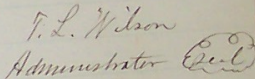 T. L. Wilson
Administrator